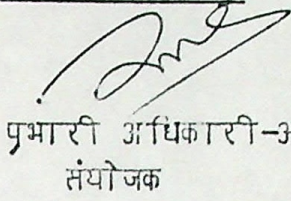 प्रभारी अधिकारी-
संयोजक